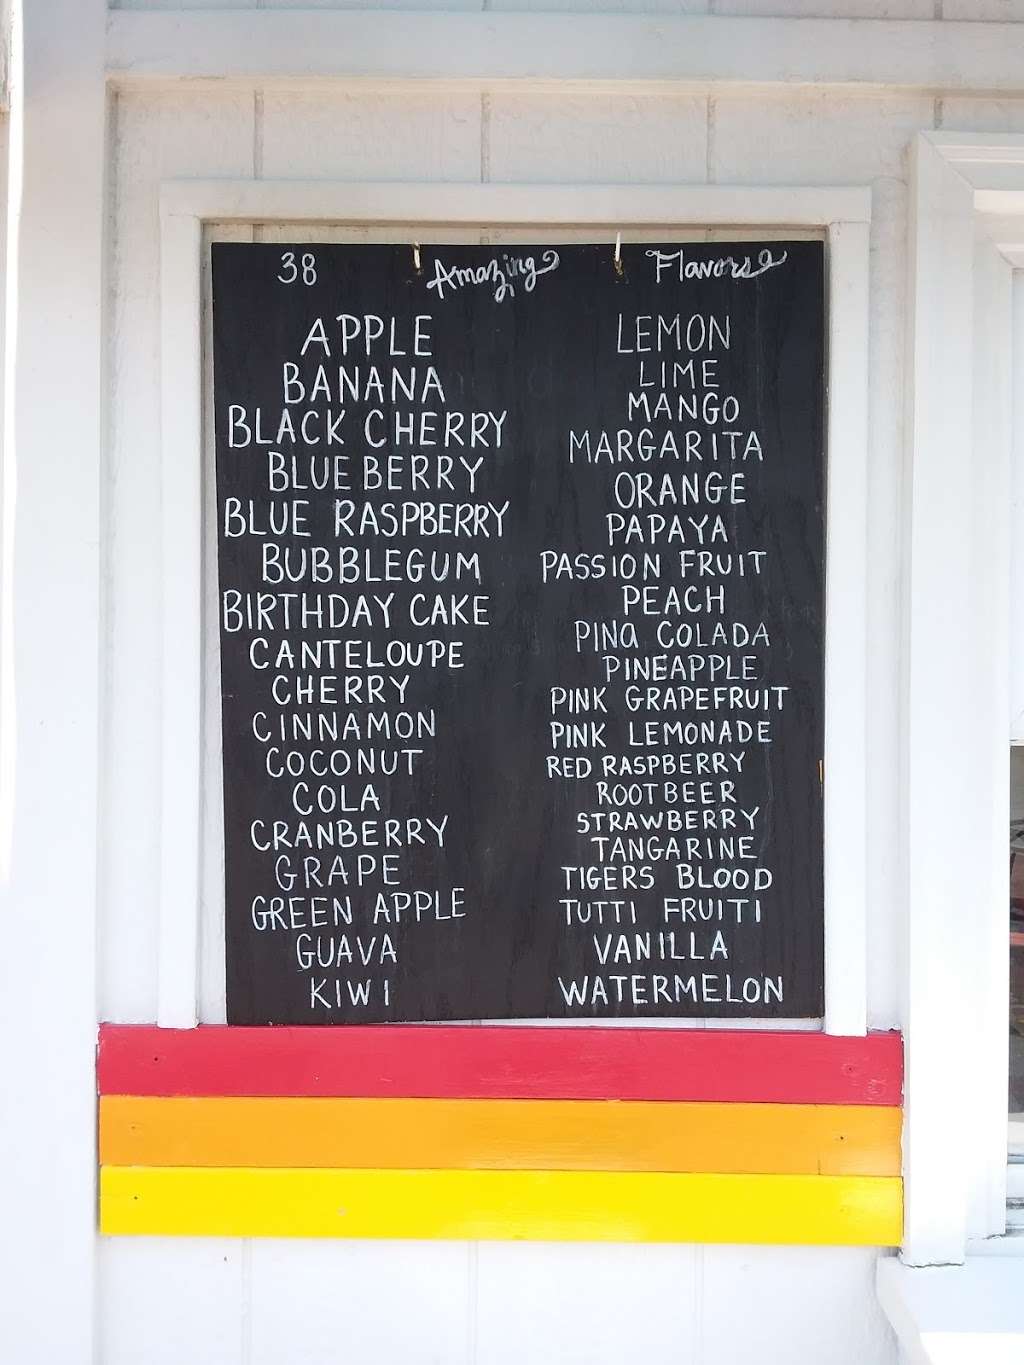 38 Amazing Flavors
APPLE
BANANA
BLACK CHERRY
BLUEBERRY
BLUE RASPBERRY
BUBBLEGUM
BIRTHDAY CAKE
CANTELOUPE
CHERRY
CINNAMON
COCONUT
COLA
CRANBERRY
GRAPE
GREEN APPLE
GUAVA
KIWI
LEMON
LIME
MANGO
MARGARITA
ORANGE
PAPAYA
PASSION FRUIT
PEACH
PINa COLADA
PINEAPPLE
PINK GRAPEFRUIT
PINK LEMONADE
RED RASPBERRY
ROOTBEER
STRAWBERRY
TANGARINE
TIGERS BLOOD
TUTTI FRUITI
VANILLA
WATERMELON